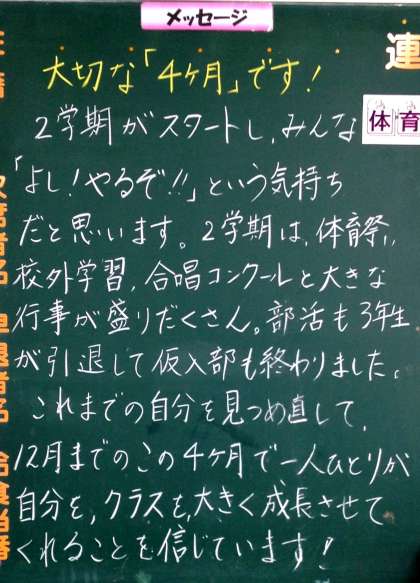 メッセージ
連
大切な「4ヶ月」です!
2学期がスタートし、みんな
体育
「よし!やるぞ!!」という気持ち
だと思います。2学期は、体育祭、
校外学習、合唱コンクールと大きな
行事が盛りだくさん。部活も3年生
が引退して仮入部も終わりました。
これまでの自分を見つめ直して、
12月までのこの4ヶ月で一人ひとりが
自分を、クラスを、大きく成長させて
くれることを信じています!